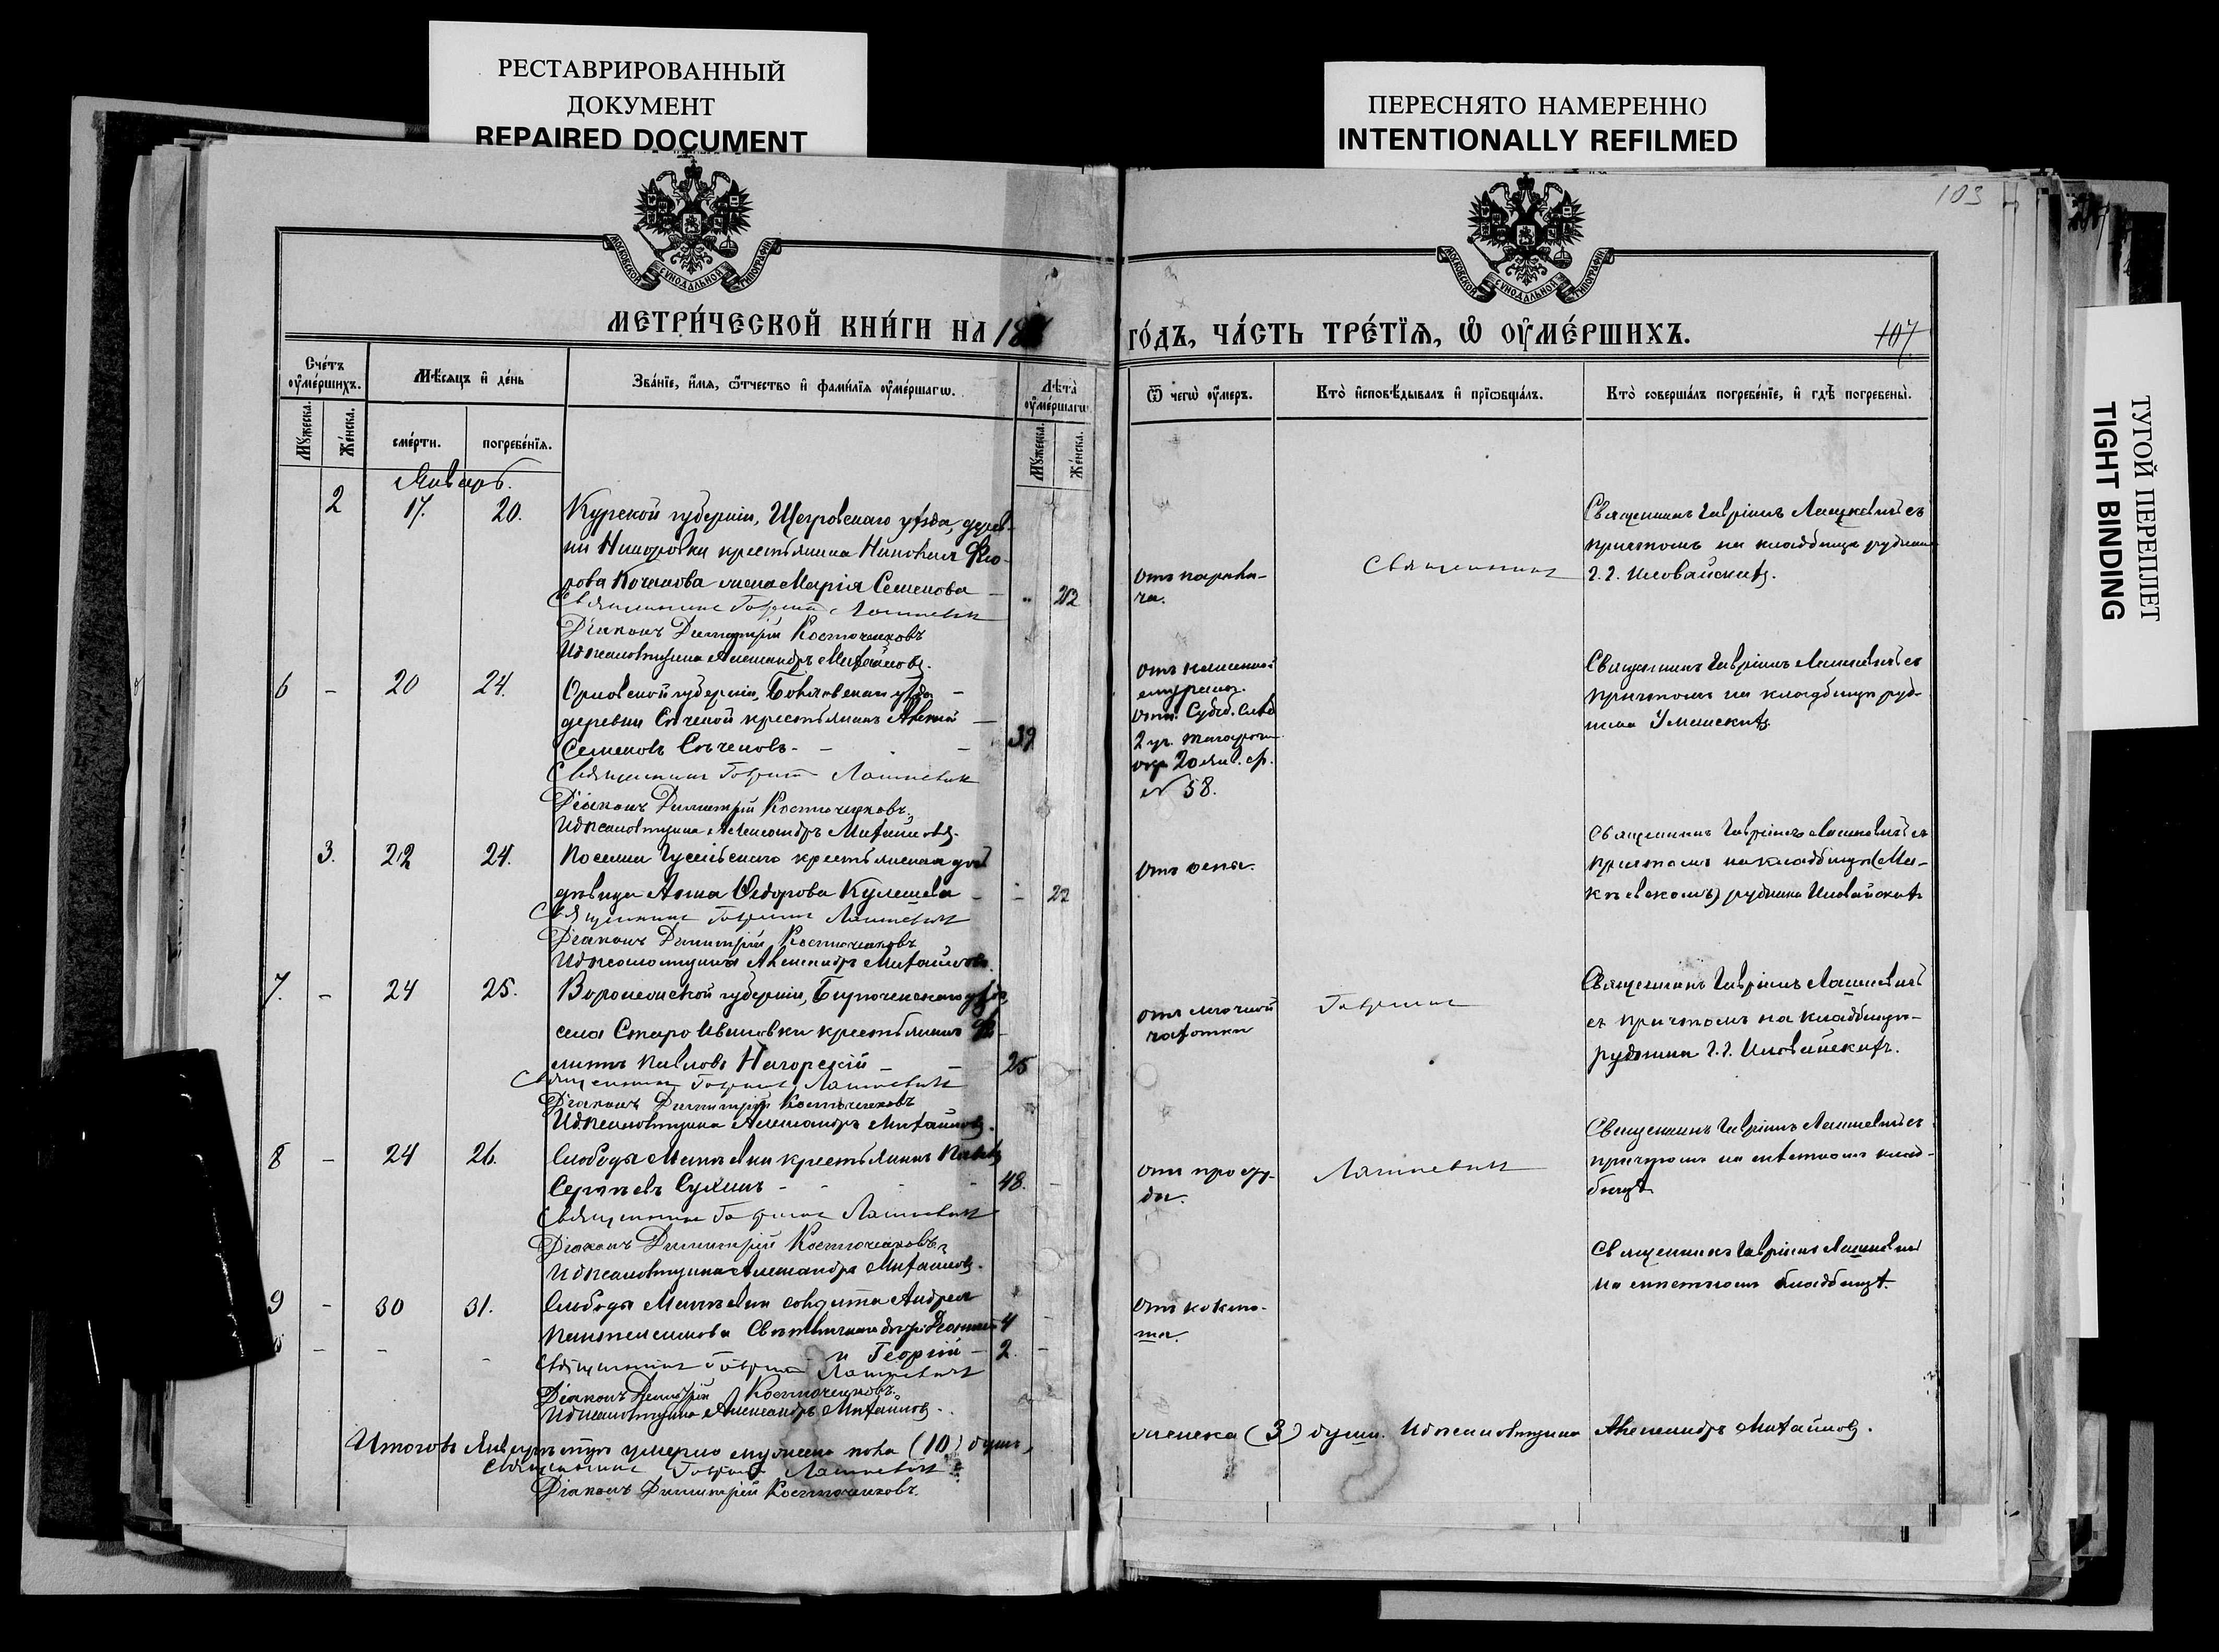 РЕСТАВРИРОВАННЫЙ
ДОКУМЕНТ
REPAIRED DOCUMENT
ПЕРЕСНЯТО НАМЕРЕННО
INTENTIONALLY REFILMED
ТУГОЙ ПЕРЕПЛЕТ
TIGHT BINDING
103
МОСКОВСКОЙ СѴНОДАЛЬНОЙ ТИПОГРАФІИ
МОСКОВСКОЙ СѴНОДАЛЬНОЙ ТИПОГРАФІИ
МЕТРИ́ЧЕСКОЙ КНИ́ГИ НА 18
ГО́ДЪ, ЧА́СТЬ ТРЕ́ТЇѦ, Ѡ҆ ОУ҆МЕ́РШИХЪ.
107
Сче́тъ оу҆ме́ршихъ.
Мѣ́сяцъ и҆ де́нь
Зва́нїе, и҆́мѧ, ѻ҆́тчество и҆ фами́лїѧ оу҆ме́ршагѡ.
Лѣ́та оу҆ме́ршагѡ
Ѿ чегѡ̀ оу҆́меръ.
Кто̀ и҆сповѣ́дывалъ и҆ прїѡбща́лъ.
Кто̀ соверша́лъ погребе́нїе, и҆ гдѣ̀ погребены̀.
Мꙋ́жеска.
Же́нска.
сме́рти.
погребе́нїѧ.
Мꙋ́жеска.
Же́нска.
Январь.
2 17. 20. Курской губерніи, Щигровскаго уѣзда, дерев-
ни Никоровки крестьянина Никовая Ѳео-
рова Кочанова жена Марія Семенова 22
Священникъ Гавріилъ Лашкевичъ
Діаконъ Димитрій Косточенковъ
И. д. псаломщика Александръ Михайловъ.
отъ парали-
ча.
Священникъ
Священникъ Гавріилъ Лашкевичъ съ
причтомъ на кладбищѣ рудника
г.г. Иловайскихъ.
6 - 20 24. Орловской губерніи, Болховскаго уѣзда
деревни Сѣченой крестьянинъ Алексѣй
Семеновъ Сѣченовъ - 39
Священникъ Гавріилъ Лашкевичъ
Діаконъ Димитрій Косточенковъ
И. д. псаломщика Александръ Михайловъ.
отъ
отн. Судеб. Слѣд
2 уч. Таганрог.
окр 20 янв. с/г.
№ 58.
Священникъ Гавріилъ Лашкевичъ съ
причтомъ на кладбищѣ руд-
ника
3. 22 24. Поселка крестьянская
дѣвица Анна Ѳедорова Кулешева - 22
Священникъ Гавріилъ Лашкевичъ
Діаконъ Димитрій Косточенковъ
И. д. псаломщика Александръ Михайловъ
отъ оспы.
Священникъ Гавріилъ Лашкевичъ съ
причтомъ на кладбищѣ (Ма-
кѣевскомъ) рудника Иловайскихъ
7. - 24 25. Воронежской губерніи, Бирюченскаго уѣзда,
села Староивановки крестьянинъ
Павловъ Нагорскій - 25
Священникъ Гавріилъ Лашкевичъ
Діаконъ Димитрій Косточенковъ
И. д. псаломщика Александръ Михайловъ.
отъ легочной
чахотки
Гавріилъ
Священникъ Гавріилъ Лашкевичъ
съ причтомъ на кладбищѣ
рудника г.г. Иловайскихъ.
8 - 24 26. Слободы Макѣевки крестьянинъ
Сергѣевъ Сухинъ - 48.
Священникъ Гавріилъ Лашкевичъ
Діаконъ Димитрій Косточенковъ
И. д. псаломщика Александръ Михайловъ.
отъ просту-
ды.
Лашкевичъ
Священникъ Гавріилъ Лашкевичъ съ
причтомъ на мѣстномъ клад-
бищѣ
9 - 30 31. Слободы Макѣевки солдата Андрея
Пантелеимонова дѣти 4
и Георгій - 2.
Священникъ Гавріилъ Лашкевичъ
Діаконъ Димитрій Косточенковъ
И. д. псаломщика Александръ Михайловъ.
отъ коклю-
ша.
Священникъ Гавріилъ Лашкевичъ
на мѣстномъ кладбищѣ.
Итого въ Январѣ умерло мужеска пола (10) душъ,
женска (3) души. И. д. псаломщика Александръ Михайловъ.
Священникъ Гавріилъ Лашкевичъ
Діаконъ Димитрій Косточенковъ.